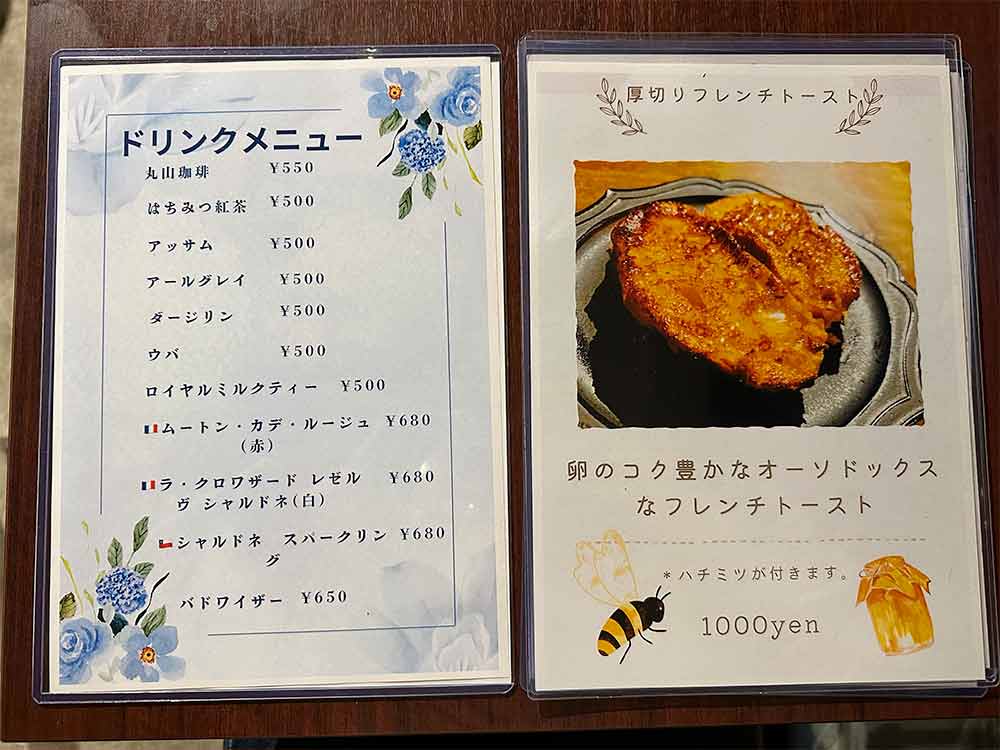 ドリンクメニュー
丸山珈琲 ¥550
はちみつ紅茶 ¥500
アッサム ¥500
アールグレイ ¥500
ダージリン ¥500
ウバ ¥500
ロイヤルミルクティー ¥500
ムートン・カデ・ルージュ ¥680
(赤)
ラ・クロワザード レゼル ¥680
ヴ シャルドネ(白)
シャルドネ スパークリン ¥680
グ
バドワイザー ¥650
厚切りフレンチトースト
卵のコク豊かなオーソドックス
なフレンチトースト
*ハチミツが付きます。
1000yen